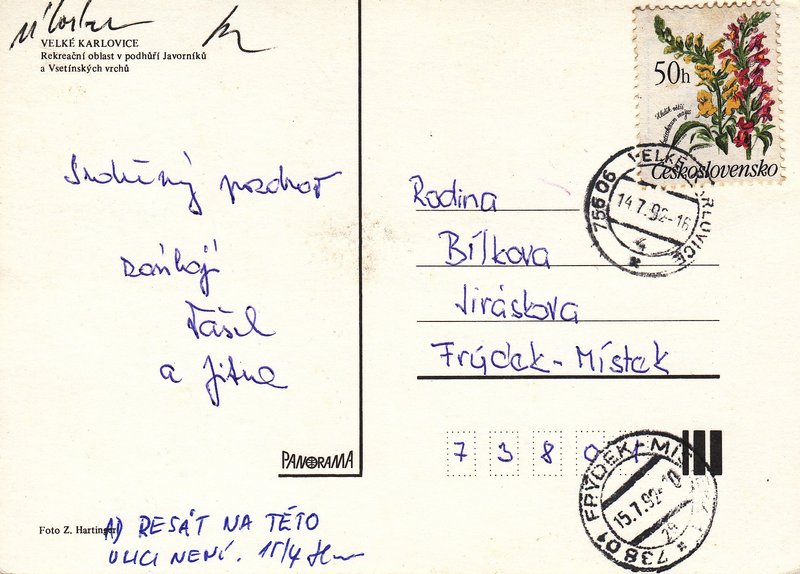 VELKÉ KARLOVICE
Rekreační oblast v podhůří Javorníků
a Vsetínských vrchů
50h
Československo
756 06 VELKÉ KARLOVICE
14.7.92-16
Srdečný pozdrav
Rodina
Bílkova
Jiráskova
Frýdek-Místek
a Jitka
PANORAMA
7 3 8 0 1
738 01 FRÝDEK
15.7.92-10
Foto Z. Hartinger
A) RESÁT NA TÉTO
ULICI NENÍ. 15/4